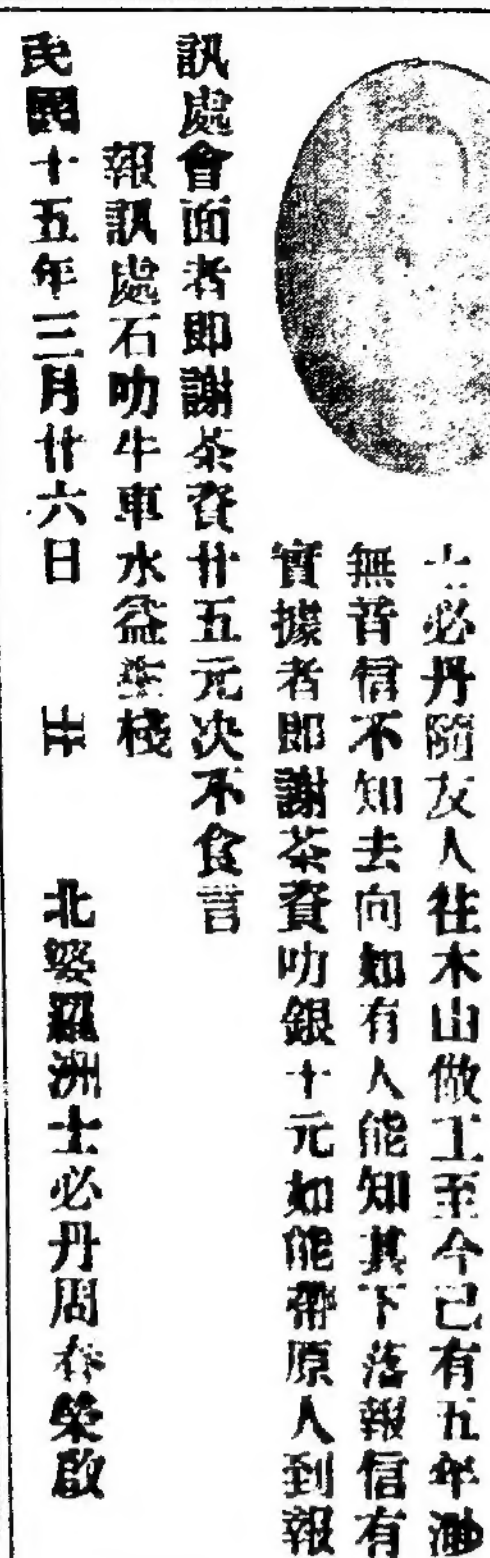 士必丹隨友人往木山做工至今已有五年渺
無音信不知去向如有人能知其下落報信有
實據者即謝茶資叻銀十元如能帶原人到報
訊處會面者即謝茶資廿五元决不食言
報訊處石叻牛車水益生棧
民國十五年三月廿六日
北婆羅洲士必丹周春榮啟